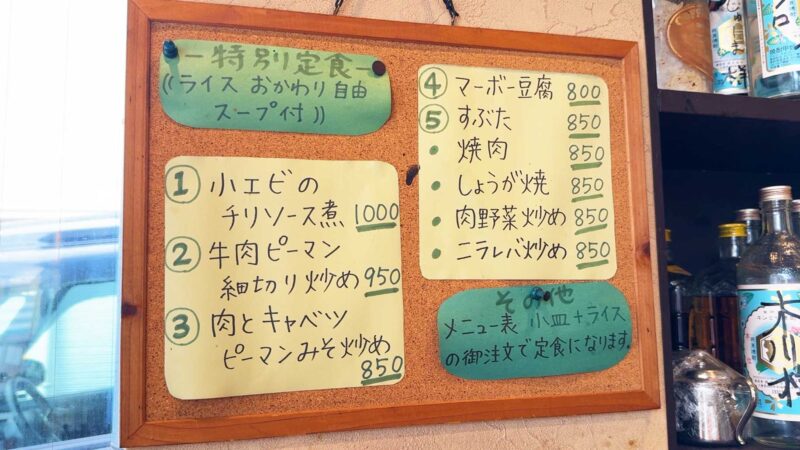 ー特別定食ー
((ライス おかわり自由
スープ付))
① 小エビの
チリソース煮 1000
② 牛肉ピーマン
細切り炒め 950
③ 肉とキャベツ
ピーマンみそ炒め
850
④ マーボー豆腐 800
⑤ すぶた 850
・ 焼肉 850
・ しょうが焼 850
・ 肉野菜炒め 850
・ ニラレバ炒め 850
その他
メニュー表 小皿+ライス
の御注文で定食になります。